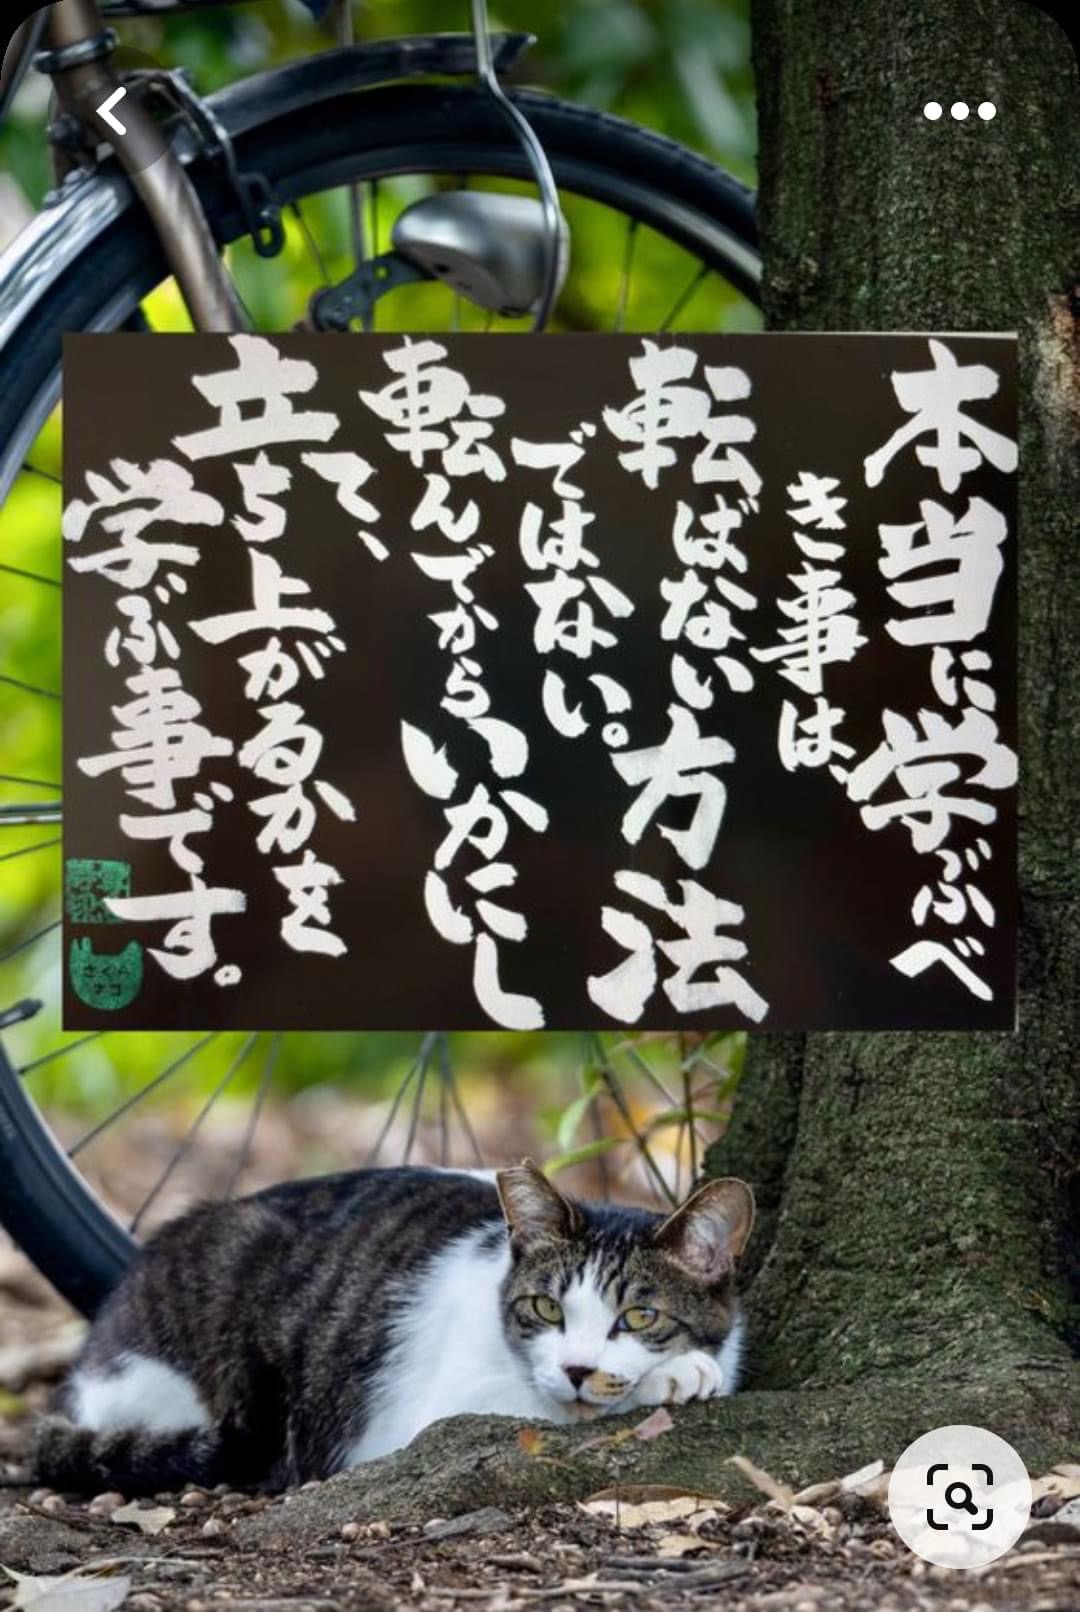 本当に学ぶべ
き事は、
転ばない方法
ではない。
転んでからいかにし
て、
立ち上がるかを
学ぶ事です。